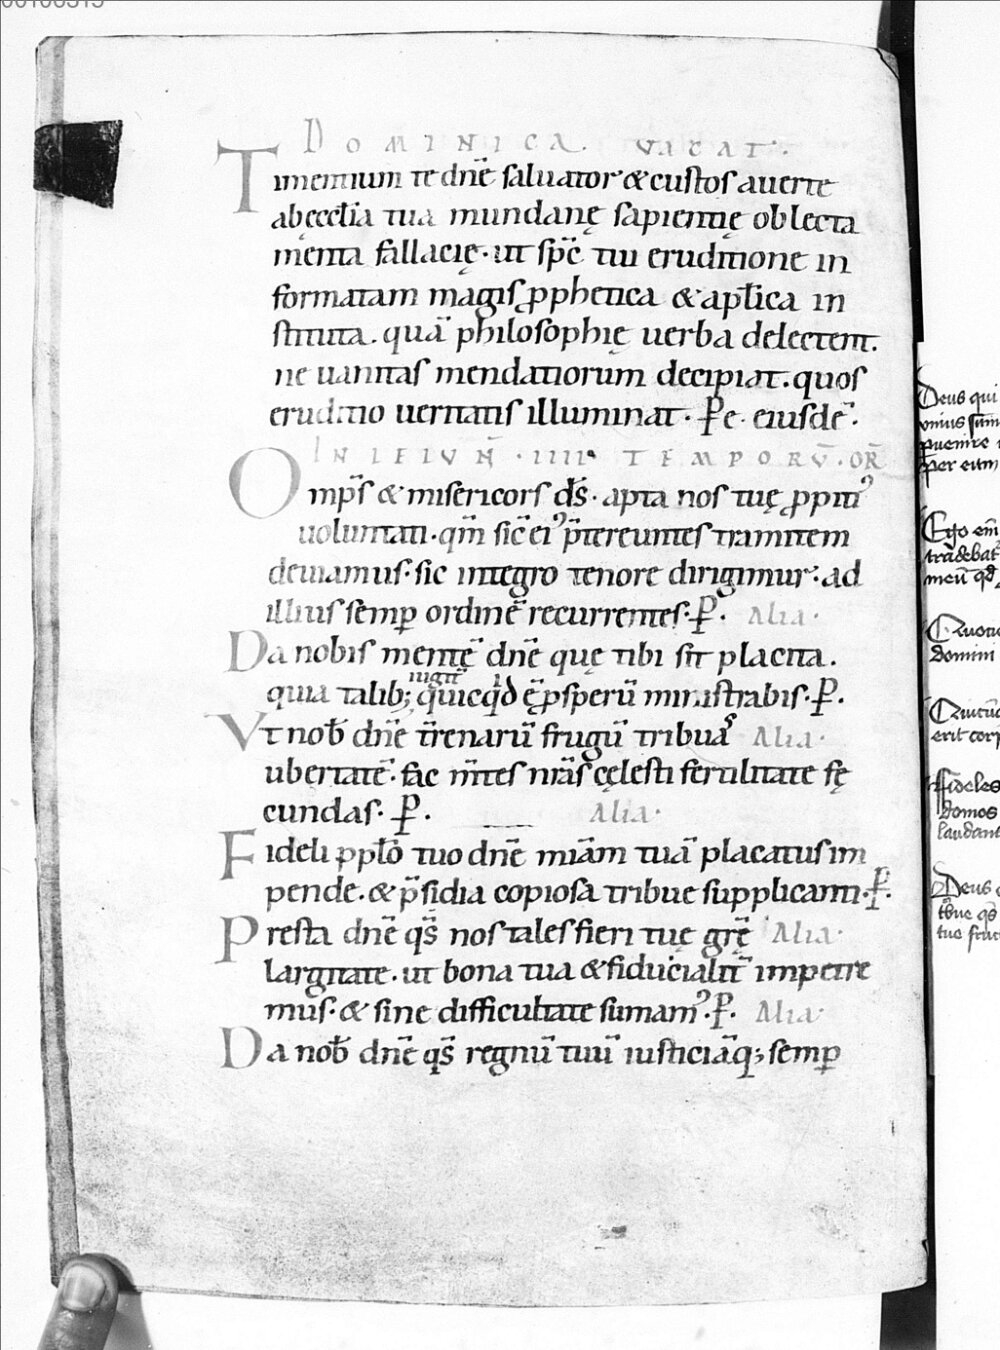 DOMINICA. VACAT.
Timentium te dn̄e saluator & custos auerte
ab ęccl̄ia tua mundanę sapientię oblecta
menta fallacię. ut sp̄c tui eruditione in
formatam magis ꝓphetica & apl̄ica in
stituta. quā philosophię uerba delectent.
ne uanitas mendatiorum decipiat. quos
eruditio ueritatis illuminat. ꝑ e. eiusdē.
INIEIVN̄. IIII TEMPORV̄. OR̄
Omp̄s & misericors d̄s. apta nos tuę ꝓpitiꝰ
uoluntati. qm̄ sic̄ eiꝰ p̄tereuntes tramitem
deuiamus. sic integro tenore dirigimur. ad
illius semꝑ ordinē recurrentes. ꝑ. Alia.
Da nobis mentē dn̄e quę tibi sit placita.
quia talibꝫ quicqͥd ē ꝓsperū ministrabis. ꝑ.
iugit̄
Vt nob̄ dn̄e t̄renarū frugū tribuas Alia.
ubertatē. fac m̄tes nr̄as cęlesti fertilitate fę
cundas. ꝑ. Alia.
Fideli ppl̄o tuo dn̄e miām tuā placatus im
pende. & p̄sidia copiosa tribue supplicanti. ꝑ.
Presta dn̄e qs̄ nos tales fieri tuę gr̄ę Alia.
largitate. ut bona tua & fiducialit̄ impetre
mus. & sine difficultate sumamꝰ. ꝑ. Alia.
Da nob̄ dn̄e qs̄ regnū tuū iusticiāqꝫ semꝑ
Deus qui
ꝑ eum
domini
Fideles
domos
Deus